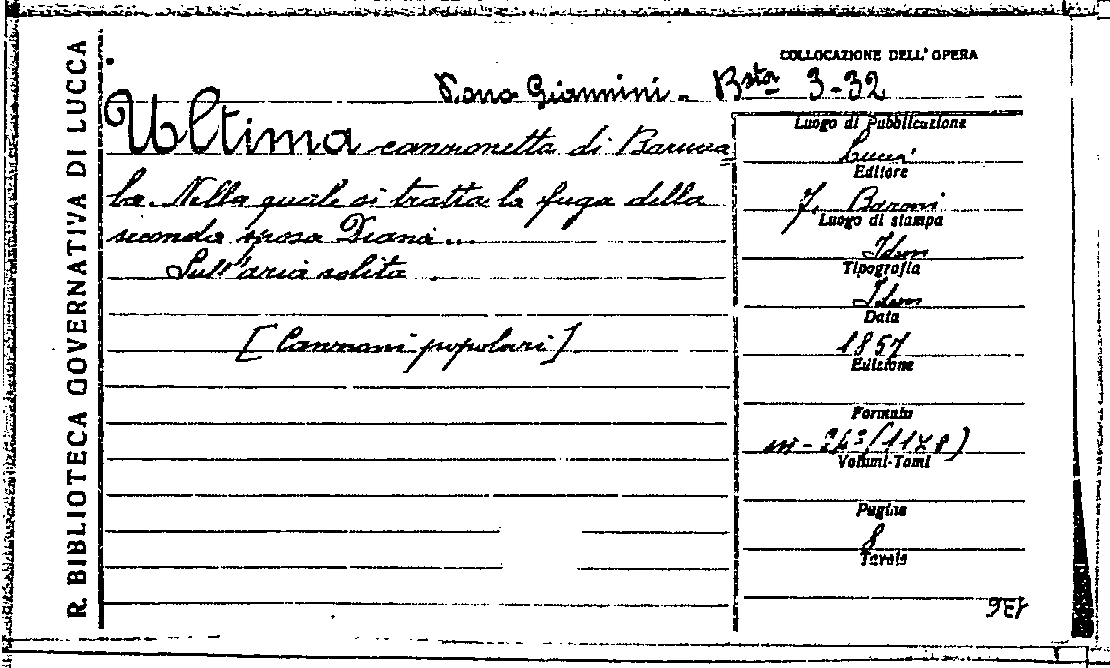 R. BIBLIOTECA GOVERNATIVA DI LUCCA
COLLOCAZIONE DELL' OPERA
Giannini - Bsta 3-32
Ultima canzonetta di Barucca
ba. Nella quale si tratta la fuga della
seconda sposa Diana...
Sull'aria solita.
[Canzoni popolari]
Luogo di Pubblicazione
Lucca
Editore
Baroni
Luogo di stampa
Idem
Tipografia
Idem
Data
1857
Edizione
Formato
in-24º (11x8)
Volumi-Tomi
Pagine
8
Tavole